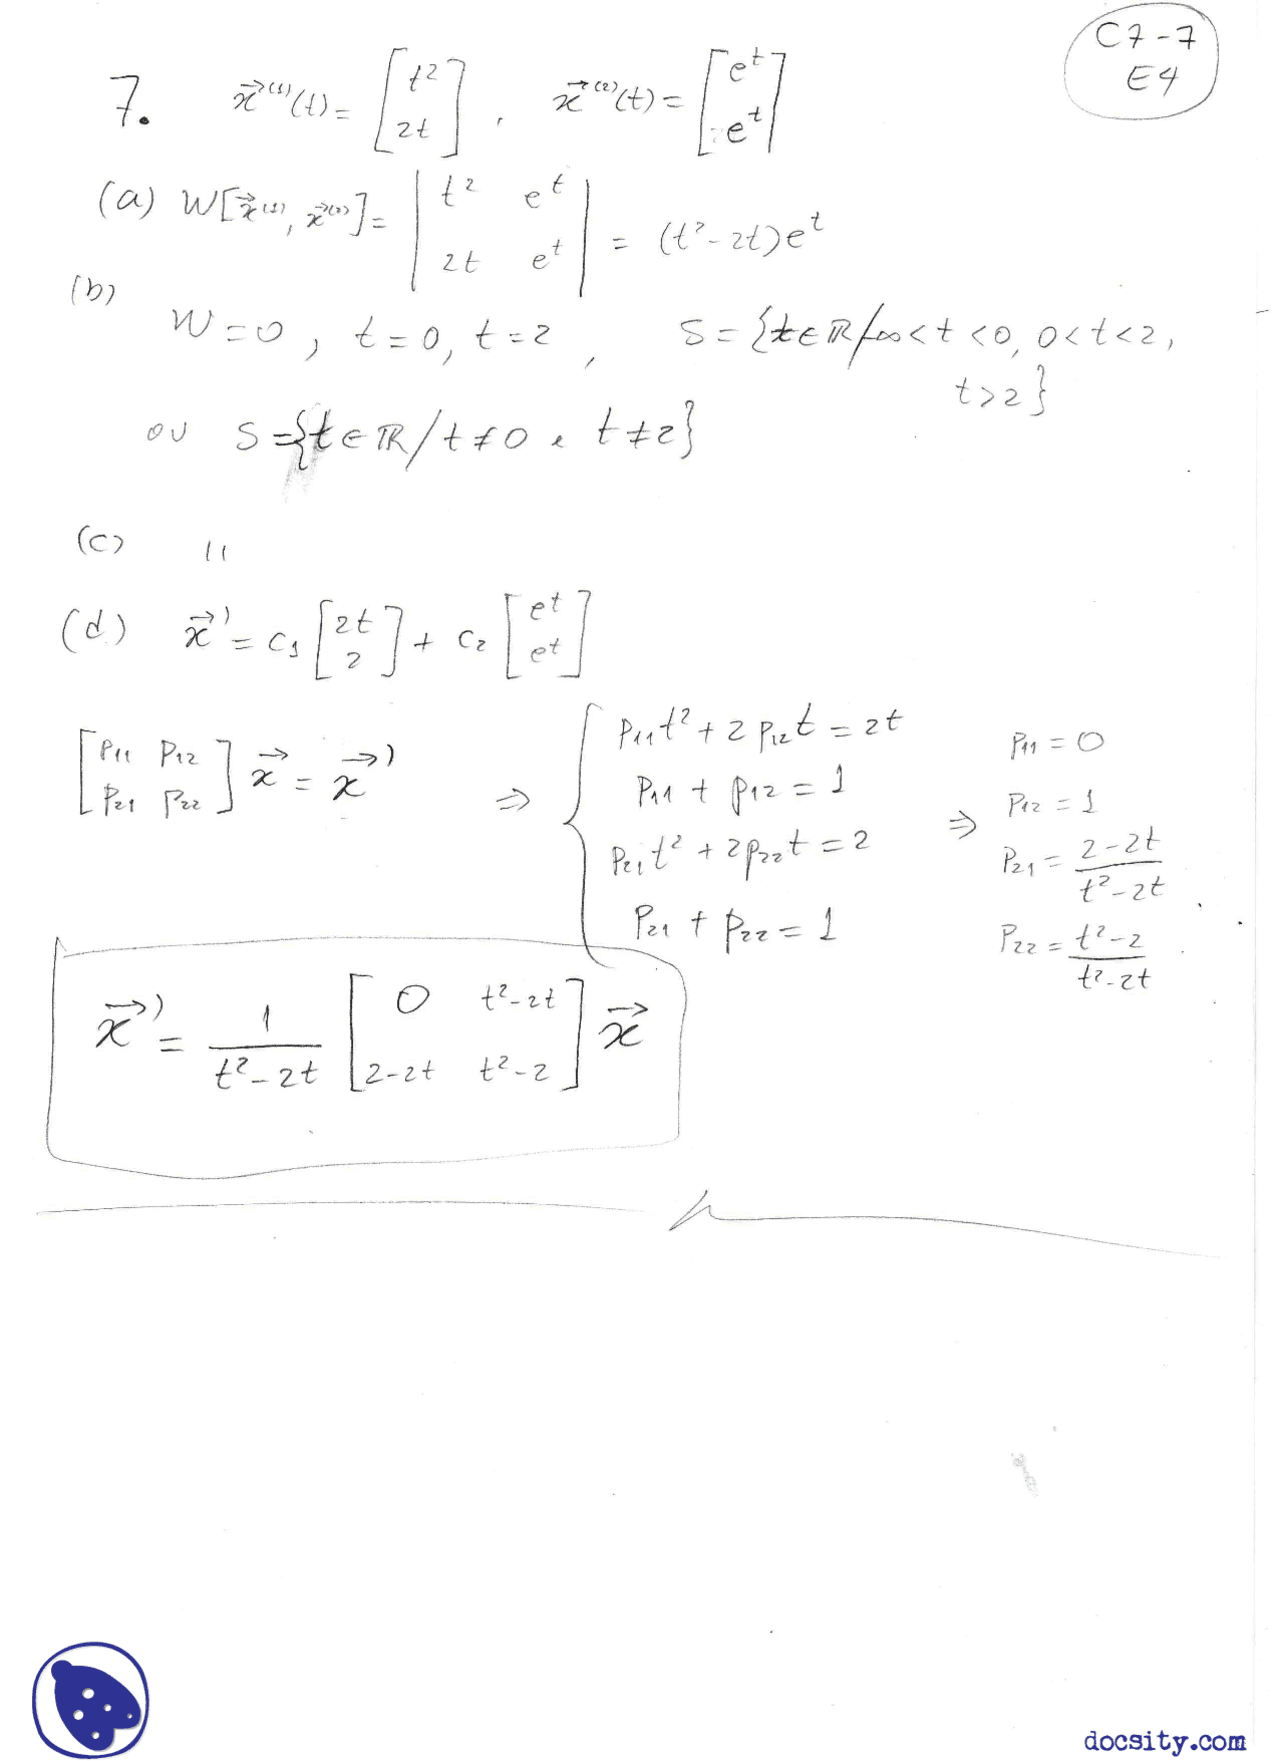 C7-7
E4
7. x⃗⁽¹⁾(t) = [t² ; 2t] , x⃗⁽²⁾(t) = [eᵗ ; eᵗ]
(a) W[x⃗⁽¹⁾, x⃗⁽²⁾] = |t² eᵗ ; 2t eᵗ| = (t²-2t)eᵗ
(b)
W=0, t=0, t=2, S={t∈ℝ/-∞<t<0, 0<t<2,
t>2}
ou S={t∈ℝ/t≠0 e t≠2}
(c) 11
(d) x⃗' = c₁ [2t ; 2] + c₂ [eᵗ ; eᵗ]
[p₁₁ p₁₂ ; p₂₁ p₂₂] x⃗ = x⃗' ⇒ {
p₁₁t² + 2p₁₂t = 2t
p₁₁ + p₁₂ = 1
p₂₁t² + 2p₂₂t = 2
p₂₁ + p₂₂ = 1
⇒
p₁₁ = 0
p₁₂ = 1
p₂₁ = (2-2t)/(t²-2t)
p₂₂ = (t²-2)/(t²-2t)
x⃗' = 1/(t²-2t) [0 t²-2t ; 2-2t t²-2] x⃗
docsity.com